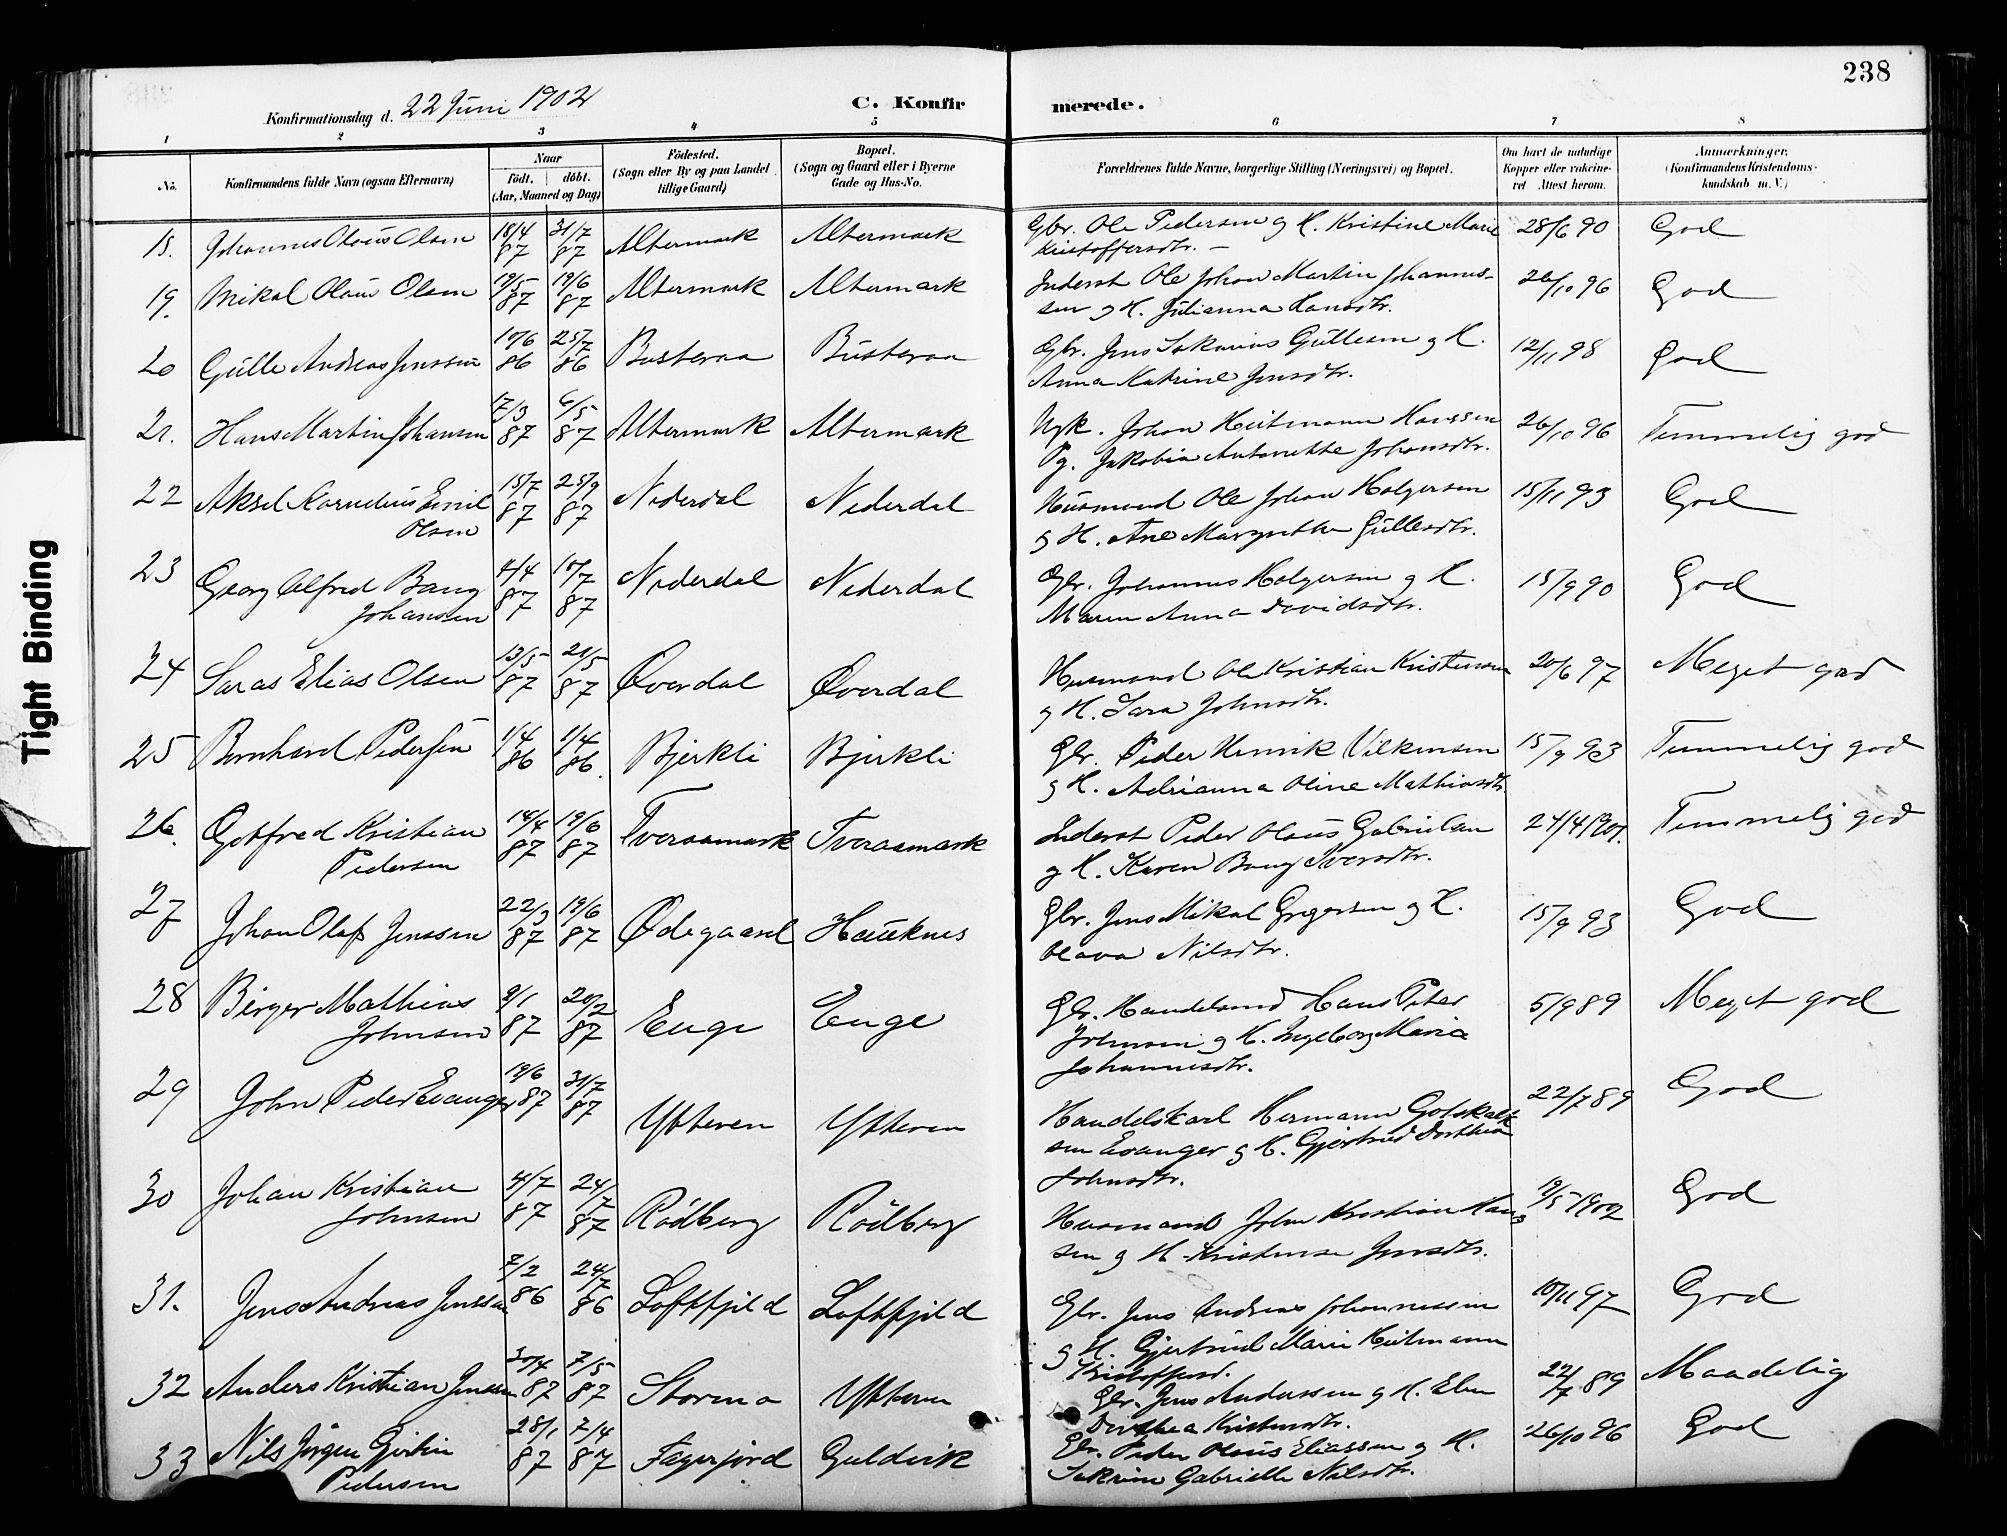 238
Konfirmationsdag d. 22 Juni 1902
C. Konfirmerede.
1 2 3 4 5 6 7 8
No.
Konfirmandens fulde Navn (ogsaa Efternavn)
Naar født. døbt. (Aar, Maaned og Dag)
Fødested. (Sogn eller By og paa Landet tillige Gaard)
Bopæl. (Sogn og Gaard eller i Byerne Gade og Hus-No.
Forældrenes fulde Navne, borgerlige Stilling (Næringsvei) og Bopæl.
Om havt de naturlige Kopper eller vakcineret. Attest herom.
Anmærkninger. (Konfirmandens Kristendomskundskab m. V.)
18. Johannes Olaus Olsen 18/4 87 31/7 87 Altermark Altermark Gbr. Ole Pedersen og H. Kristine Marie 28/6 90 God
Kristoffersdtr.
19. Mikal Olaus Olsen 19/5 87 19/6 87 Altermark Altermark Inderst Ole Johan Martin Johannes- 26/10 96 God
sen og H. Julianna Hansdtr.
20 Gulle Andreas Jenssen 10/6 86 25/7 86 Busteraa Busteraa Gbr. Jens Sakarias Gullesen og H. 12/11 98 God
Anna Katrine Jensdtr.
21. Hans Martin Johansen 17/3 87 6/5 87 Altermark Altermark Ugk. Johan Heitmann Hanssen 26/10 96 Temmelig god
Pg. Jakobia Antonette Johansdtr.
22 Aksel Kornelius Emil 15/7 87 25/9 87 Nederdal Nederdal Husmand Ole Johan Holgersen 15/11 93 God
Olsen og H. Ane Margrethe Gullesdtr.
23 Georg Alfred Bang 4/4 87 10/7 87 Nederdal Nederdal Gbr. Johannes Holgersen og H. 15/9 90 God
Johansen Maren Anna Davidsdtr.
24 Saras Elias Olsen 13/5 87 21/5 87 Øverdal Øverdal Husmand Ole Kristian Kristensen 20/6 97 Meget god
og H. Sara Johnsdtr.
25 Bernhard Pedersen 1/4 86 1/4 86. Bjerkli Bjerkli Gbr. Peder Henrik Vilkensen 15/9 93 Temmelig god
og H. Adrianna Oline Mathiasdtr.
26. Gotfred Kristian 14/4 87 19/6 87 Tveraamark Tveraamark Inderst Peder Olaus Gabrielsen 24/4 1901. Temmelig god
Pedersen og H. Karen Bang Iversdtr.
27 Johan Olaf Jenssen 22/3 87 19/6 87 Ødegaard Hauknes Gbr. Jens Mikal Gregersen og H. 15/9 93 God
Olava Nilsdtr.
28 Birger Mathias 9/1 87 20/2 87 Enge Enge Gbr. Handelsmd Hans Peter 5/9 89 Meget god
Johnsen Johnsen og H. Ingeborg Maria
Johannesdtr.
29 John Peder Evanger 19/6 87 31/7 87 Ytteren Ytteren Handelskarl Hermann Gotskalk- 22/7 89 God
sen Evanger og H. Gjertrud Dorthea
Johnsdtr.
30 Johan Kristian 4/7 87 24/7 87 Rødberg Rødberg Husmand John Kristian Han 19/5 1902 God
Johnsen sen og H. Kristense Jensdtr.
31. Jens Andreas Jenssen 7/2 86 24/7 86 Loftfjeld Loftfjeld Gbr. Jens Andreas Johannessen 10/11 97 God
og H. Gjertrud Marie Heitmann
Kristoffersd.
32 Anders Kristian Jenssen 30/4 87 7/5 87 Storma Ytteren Gbr. Jens Anderssen og H. Elen 22/7 89 Maadelig
Dorthea Kristensdtr.
33 Nils Jørgen Gjertin 28/1 87 7/4 87 Fagerjord Guldvik Gbr. Peder Olaus Eliassen og H. 26/10 96 God
Pedersen Sakrine Gabrielle Nilsdtr.
Tight Binding